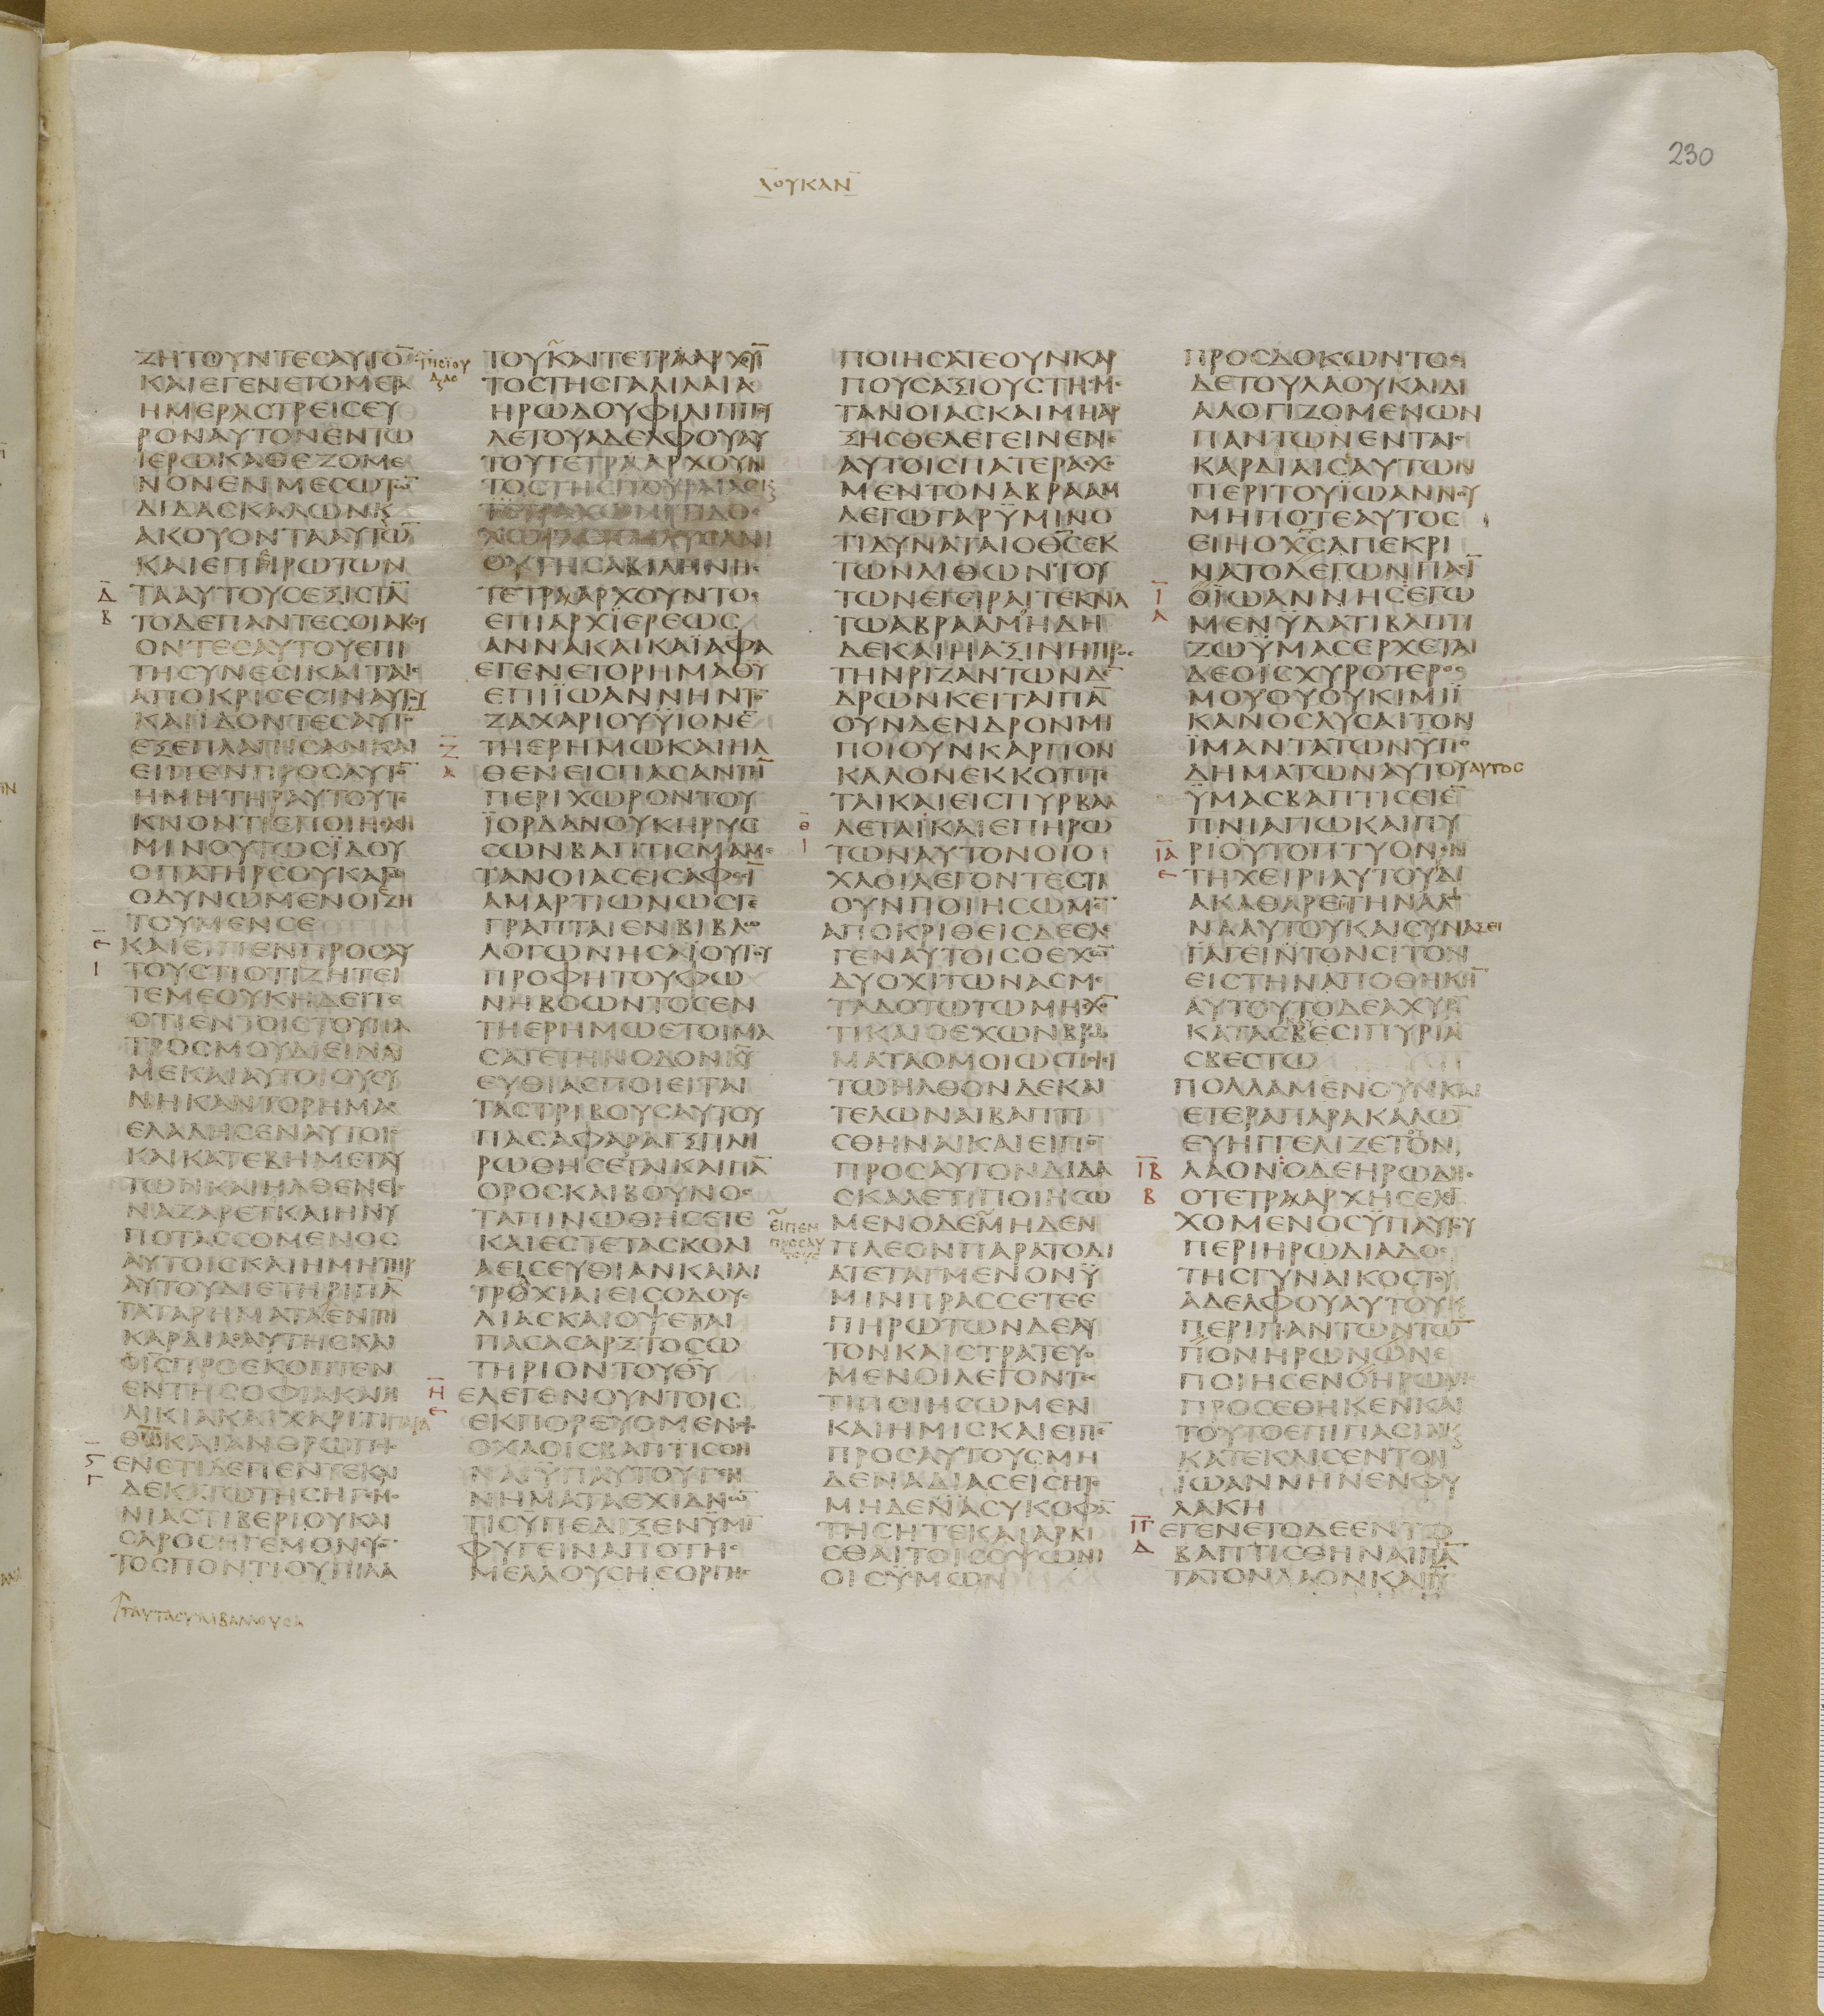 230
ΛΟΥΚΑΝ
ΖΗΤΟΥΝΤΕΣ ΑΥΤΟ̅
ΚΑΙ ΕΓΕΝΕΤΟ ΜΕΤΑ
ΗΜΕΡΑΣ ΤΡΕΙΣ ΕΥ
ΡΟΝ ΑΥΤΟΝ ΕΝ ΤΩ
ΙΕΡΩ ΚΑΘΕΖΟΜΕ
ΝΟΝ ΕΝ ΜΕΣΩ ΤΩ̅
ΔΙΔΑΣΚΑΛΩΝ Κ
ΑΚΟΥΟΝΤΑ ΑΥΤΩ̅
ΚΑΙ ΕΠΗΡΩΤΩΝ
Δ̅ Β
ΤΑ ΑΥΤΟΥΣ ΕΞΙΣΤΑ̅
ΤΟ ΔΕ ΠΑΝΤΕΣ ΟΙ ΑΚΟΥ
ΟΝΤΕΣ ΑΥΤΟΥ ΕΠΙ
ΤΗ ΣΥΝΕΣΙ ΚΑΙ ΤΑΙΣ
ΑΠΟΚΡΙΣΕΣΙΝ ΑΥΤΟΥ
ΚΑΙ ΪΔΟΝΤΕΣ ΑΥΤΟ̅
ΕΞΕΠΛΑΓΗΣΑΝ ΚΑΙ
ΕΙΠΕΝ ΠΡΟΣ ΑΥΤΟ̅
Η ΜΗΤΗΡ ΑΥΤΟΥ ΤΕ
ΚΝΟΝ ΤΙ ΕΠΟΙΗΣΑΣ Η
ΜΙΝ ΟΥΤΩΣ ΪΔΟΥ
Ο ΠΑΤΗΡ ΣΟΥ ΚΑΓΩ
ΟΔΥΝΩΜΕΝΟΙ ΖΗ
ΤΟΥΜΕΝ ΣΕ
Ε̅ Ι
ΚΑΙ ΕΙΠΕΝ ΠΡΟΣ ΑΥ
ΤΟΥΣ ΤΙ ΟΤΙ ΖΗΤΕΙ
ΤΕ ΜΕ ΟΥΚ ΗΔΕΙΤΕ
ΟΤΙ ΕΝ ΤΟΙΣ ΤΟΥ ΠΑ
ΤΡΟΣ ΜΟΥ ΔΙ ΕΙΝΑΙ
ΜΕ ΚΑΙ ΑΥΤΟΙ ΟΥ ΣΥ
ΝΗΚΑΝ ΤΟ ΡΗΜΑ Ο
ΕΛΑΛΗΣΕΝ ΑΥΤΟΙΣ
ΚΑΙ ΚΑΤΕΒΗ ΜΕΤ ΑΥ
ΤΩΝ ΚΑΙ ΗΛΘΕΝ ΕΙΣ
ΝΑΖΑΡΕΤ ΚΑΙ ΗΝ Υ
ΠΟΤΑΣΣΟΜΕΝΟΣ
ΑΥΤΟΙΣ ΚΑΙ Η ΜΗΤΗΡ
ΑΥΤΟΥ ΔΙΕΤΗΡΙ ΠΑ̅
ΤΑ ΤΑ ΡΗΜΑΤΑ ΕΝ ΤΗ
ΚΑΡΔΙΑ ΑΥΤΗΣ ΚΑΙ
Ο ΙΣ̅ ΠΡΟΕΚΟΠΤΕΝ
ΕΝ ΤΗ ΣΟΦΙΑ ΚΑΙ Η
ΛΙΚΙΑ ΚΑΙ ΧΑΡΙΤΙ ΠΑΡΑ
ΘΩ̅ ΚΑΙ ΑΝΘΡΩΠΟΙΣ
Ϛ̅ Γ
ΕΝ ΕΤΙ ΔΕ ΠΕΝΤΕΚΑΙ
ΔΕΚΑΤΩ ΤΗΣ ΗΓΕΜΟ
ΝΙΑΣ ΤΙΒΕΡΙΟΥ ΚΑΙ
ΣΑΡΟΣ ΗΓΕΜΟΝΕΥΟ̅
ΤΟΣ ΠΟΝΤΙΟΥ ΠΙΛΑ
ΤΑΥΤΑ ΣΥΜΒΑΛΛΟΥΣΑ
ΤΗΣ ΙΟΥ
ΔΑΙΑΣ
ΤΟΥ ΚΑΙ ΤΕΤΡΑΑΡΧΟΥ̅
ΤΟΣ ΤΗΣ ΓΑΛΙΛΑΙΑΣ
ΗΡΩΔΟΥ ΦΙΛΙΠΠΟΥ
ΔΕ ΤΟΥ ΑΔΕΛΦΟΥ ΑΥ
ΤΟΥ ΤΕΤΡΑΑΡΧΟΥΝ
ΤΟΣ ΤΗΣ ΙΤΟΥΡΑΙΑΣ
ΧΩΡΑΣ ΚΑΙ ΛΥΣΑΝΙ
ΟΥ ΤΗΣ ΑΒΙΛΗΝΗΣ
ΤΕΤΡΑΑΡΧΟΥΝΤΟΣ
ΕΠΙ ΑΡΧΪΕΡΕΩΣ
ΑΝΝΑ ΚΑΙ ΚΑΪΑΦΑ
ΕΓΕΝΕΤΟ ΡΗΜΑ ΘΥ̅
ΕΠΙ ΪΩΑΝΝΗΝ ΤΟ̅
ΖΑΧΑΡΙΟΥ ΫΙΟΝ Ε̅
ΤΗ ΕΡΗΜΩ ΚΑΙ ΗΛ
Ζ̅ Α
ΘΕΝ ΕΙΣ ΠΑΣΑΝ ΤΗ̅
ΠΕΡΙΧΩΡΟΝ ΤΟΥ
ΪΟΡΔΑΝΟΥ ΚΗΡΥΣ
ΣΩΝ ΒΑΠΤΙΣΜΑ ΜΕ
ΤΑΝΟΙΑΣ ΕΙΣ ΑΦΕΣΙ̅
ΑΜΑΡΤΙΩΝ ΩΣ ΓΕ
ΓΡΑΠΤΑΙ ΕΝ ΒΙΒΛΩ
ΛΟΓΩΝ ΗΣΑΪΟΥ ΤΟΥ
ΠΡΟΦΗΤΟΥ ΦΩ
ΝΗ ΒΟΩΝΤΟΣ ΕΝ
ΤΗ ΕΡΗΜΩ ΕΤΟΙΜΑ
ΣΑΤΕ ΤΗΝ ΟΔΟΝ ΚΥ̅
ΕΥΘΙΑΣ ΠΟΙΕΙΤΑΙ
ΤΑΣ ΤΡΙΒΟΥΣ ΑΥΤΟΥ
ΠΑΣΑ ΦΑΡΑΓΞ ΠΛΗ
ΡΩΘΗΣΕΤΑΙ ΚΑΙ ΠΑ̅
ΟΡΟΣ ΚΑΙ ΒΟΥΝΟΣ
ΤΑΠΙΝΩΘΗΣΕΤΕ
ΚΑΙ ΕΣΤΕ ΤΑ ΣΚΟΛΙ
Α ΕΙΣ ΕΥΘΙΑΝ ΚΑΙ ΑΙ
ΤΡΟΧΙΑΙ ΕΙΣ ΟΔΟΥΣ
ΛΙΑΣ ΚΑΙ ΟΨΕΤΑΙ
ΠΑΣΑ ΣΑΡΞ ΤΟ ΣΩ
ΤΗΡΙΟΝ ΤΟΥ ΘΥ̅
Η̅ Ε
ΕΛΕΓΕΝ ΟΥΝ ΤΟΙΣ
ΕΚΠΟΡΕΥΟΜΕΝΟΙΣ
ΟΧΛΟΙΣ ΒΑΠΤΙΣΘΗ
ΝΑΙ ΫΠ ΑΥΤΟΥ ΓΕΝ
ΝΗΜΑΤΑ ΕΧΙΔΝΩ̅
ΤΙΣ ΥΠΕΔΙΞΕΝ ΫΜΙ̅
ΦΥΓΕΙΝ ΑΠΟ ΤΗΣ
ΜΕΛΛΟΥΣΗΣ ΟΡΓΗΣ
ΠΟΙΗΣΑΤΕ ΟΥΝ ΚΑΡ
ΠΟΥΣ ΑΞΙΟΥΣ ΤΗΣ ΜΕ
ΤΑΝΟΙΑΣ ΚΑΙ ΜΗ ΑΡ
ΞΗΣΘΕ ΛΕΓΕΙΝ ΕΝ Ε
ΑΥΤΟΙΣ ΠΑΤΕΡΑ ΕΧΟ
ΜΕΝ ΤΟΝ ΑΒΡΑΑΜ
ΛΕΓΩ ΓΑΡ ΫΜΙΝ Ο
ΤΙ ΔΥΝΑΤΑΙ Ο ΘΣ̅ ΕΚ
ΤΩΝ ΛΙΘΩΝ ΤΟΥ
ΤΩΝ ΕΓΕΙΡΑΙ ΤΕΚΝΑ
ΤΩ ΑΒΡΑΑΜ ΗΔΗ
ΔΕ ΚΑΙ Η ΑΞΙΝΗ ΠΡΟΣ
ΤΗΝ ΡΙΖΑΝ ΤΩΝ ΔΕ̅
ΔΡΩΝ ΚΕΙΤΑΙ ΠΑ̅
ΟΥΝ ΔΕΝΔΡΟΝ ΜΗ
ΠΟΙΟΥΝ ΚΑΡΠΟΝ
ΚΑΛΟΝ ΕΚΚΟΠΤΕ
ΤΑΙ ΚΑΙ ΕΙΣ ΠΥΡ ΒΑΛ
Θ̅ Ι
ΛΕΤΑΙ ΚΑΙ ΕΠΗΡΩ
ΤΩΝ ΑΥΤΟΝ ΟΙ Ο
ΧΛΟΙ ΛΕΓΟΝΤΕΣ ΤΙ
ΟΥΝ ΠΟΙΗΣΩΜΕ̅
ΑΠΟΚΡΙΘΕΙΣ ΔΕ ΕΛΕ
ΓΕΝ ΑΥΤΟΙΣ Ο ΕΧΩ̅
ΔΥΟ ΧΙΤΩΝΑΣ ΜΕ
ΤΑΔΟΤΩ ΤΩ ΜΗ ΕΧΟ̅
ΤΙ ΚΑΙ Ο ΕΧΩΝ ΒΡΩ
ΜΑΤΑ ΟΜΟΙΩΣ ΠΟΙΕΙ
ΤΩ ΗΛΘΟΝ ΔΕ ΚΑΙ
ΤΕΛΩΝΑΙ ΒΑΠΤΙ
ΣΘΗΝΑΙ ΚΑΙ ΕΙΠΟ̅
ΠΡΟΣ ΑΥΤΟΝ ΔΙΔΑ
ΣΚΑΛΕ ΤΙ ΠΟΙΗΣΩ
ΕΙΠΕΝ
ΠΡΟΣ ΑΥ
ΤΟΥΣ
ΜΕΝ Ο ΔΕ ΜΗΔΕΝ
ΠΛΕΟΝ ΠΑΡΑ ΤΟ ΔΙ
ΑΤΕΤΑΓΜΕΝΟΝ Ϋ
ΜΙΝ ΠΡΑΣΣΕΤΕ Ε
ΠΗΡΩΤΩΝ ΔΕ ΑΥ
ΤΟΝ ΚΑΙ ΣΤΡΑΤΕΥΟ
ΜΕΝΟΙ ΛΕΓΟΝΤΕΣ
ΤΙ ΠΟΙΗΣΩΜΕΝ
ΚΑΙ ΗΜΙΣ ΚΑΙ ΕΙΠΕ̅
ΠΡΟΣ ΑΥΤΟΥΣ ΜΗ
ΔΕΝΑ ΔΙΑΣΕΙΣΗΤΕ
ΜΗΔΕΝΑ ΣΥΚΟΦΑ̅
ΤΗΣΗΤΕ ΚΑΙ ΑΡΚΙ
ΣΘΑΙ ΤΟΙΣ ΟΨΩΝΙ
ΟΙΣ ΫΜΩΝ
ΠΡΟΣΔΟΚΩΝΤΟΣ
ΔΕ ΤΟΥ ΛΑΟΥ ΚΑΙ ΔΙ
ΑΛΟΓΙΖΟΜΕΝΩΝ
ΠΑΝΤΩΝ ΕΝ ΤΑΙΣ
ΚΑΡΔΙΑΙΣ ΑΥΤΩΝ
ΠΕΡΙ ΤΟΥ ΪΩΑΝΝΟΥ
ΜΗΠΟΤΕ ΑΥΤΟΣ
ΕΙΗ Ο ΧΣ̅ ΑΠΕΚΡΙ
ΝΑΤΟ ΛΕΓΩΝ ΠΑΣΙ̅
Ι̅ Α
Ο ΪΩΑΝΝΗΣ ΕΓΩ
ΜΕΝ ΫΔΑΤΙ ΒΑΠΤΙ
ΖΩ ΫΜΑΣ ΕΡΧΕΤΑΙ
ΔΕ Ο ΙΣΧΥΡΟΤΕΡΟΣ
ΜΟΥ ΟΥ ΟΥΚ ΙΜΙ Ϊ
ΚΑΝΟΣ ΛΥΣΑΙ ΤΟΝ
ΪΜΑΝΤΑ ΤΩΝ ΫΠΟ
ΔΗΜΑΤΩΝ ΑΥΤΟΥ ΑΥΤΟΣ
ΫΜΑΣ ΒΑΠΤΙΣΕΙ Ε̅
ΠΝΙ̅ ΑΓΙΩ ΚΑΙ ΠΥ
ΙΑ̅ Ε
ΡΙ ΟΥ ΤΟ ΠΤΥΟΝ ΕΝ
ΤΗ ΧΕΙΡΙ ΑΥΤΟΥ ΔΙ
ΑΚΑΘΑΡΕ ΤΗΝ ΑΛΩ
ΝΑ ΑΥΤΟΥ ΚΑΙ ΣΥΝΑΞΕΙ
ΓΑΓΕΙΝ ΤΟΝ ΣΙΤΟΝ
ΕΙΣ ΤΗΝ ΑΠΟΘΗΚΗ̅
ΑΥΤΟΥ ΤΟ ΔΕ ΑΧΥΡΟ̅
ΚΑΤΑΣΒΕΣΙ ΠΥΡΙ Α
ΣΒΕΣΤΩ
ΠΟΛΛΑ ΜΕΝ ΟΥΝ ΚΑΙ
ΕΤΕΡΑ ΠΑΡΑΚΑΛΩ̅
ΕΥΗΓΓΕΛΙΖΕΤΟ ΤΟΝ
ΙΒ̅ Β
ΛΑΟΝ Ο ΔΕ ΗΡΩΔΗΣ
Ο ΤΕΤΡΑΑΡΧΗΣ ΕΛΕΓ
ΧΟΜΕΝΟΣ ΫΠ ΑΥΤΟΥ
ΠΕΡΙ ΗΡΩΔΙΑΔΟΣ
ΤΗΣ ΓΥΝΑΙΚΟΣ ΤΟΥ
ΑΔΕΛΦΟΥ ΑΥΤΟΥ Κ
ΠΕΡΙ ΠΑΝΤΩΝ ΤΩ̅
ΠΟΝΗΡΩΝ ΩΝ Ε
ΠΟΙΗΣΕΝ Ο ΗΡΩΔΗΣ
ΠΡΟΣΕΘΗΚΕΝ ΚΑΙ
ΤΟΥΤΟ ΕΠΙ ΠΑΣΙΝ Κ
ΚΑΤΕΚΛΙΣΕΝ ΤΟΝ
ΪΩΑΝΝΗΝ ΕΝ ΦΥ
ΛΑΚΗ
ΙΓ̅ Δ
ΕΓΕΝΕΤΟ ΔΕ ΕΝ ΤΩ
ΒΑΠΤΙΣΘΗΝΑΙ ΠΑ̅
ΤΑ ΤΟΝ ΛΑΟΝ ΚΑΙ ΙΥ̅